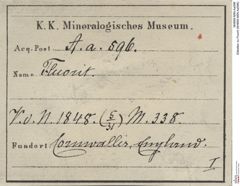 K. K. Mineralogisches Museum.
Acq. Post A. a. 596.
Name Fluorit.
V. v. N. 1848. (5/31) M. 338.
Fundort Cornwallis, England.
I